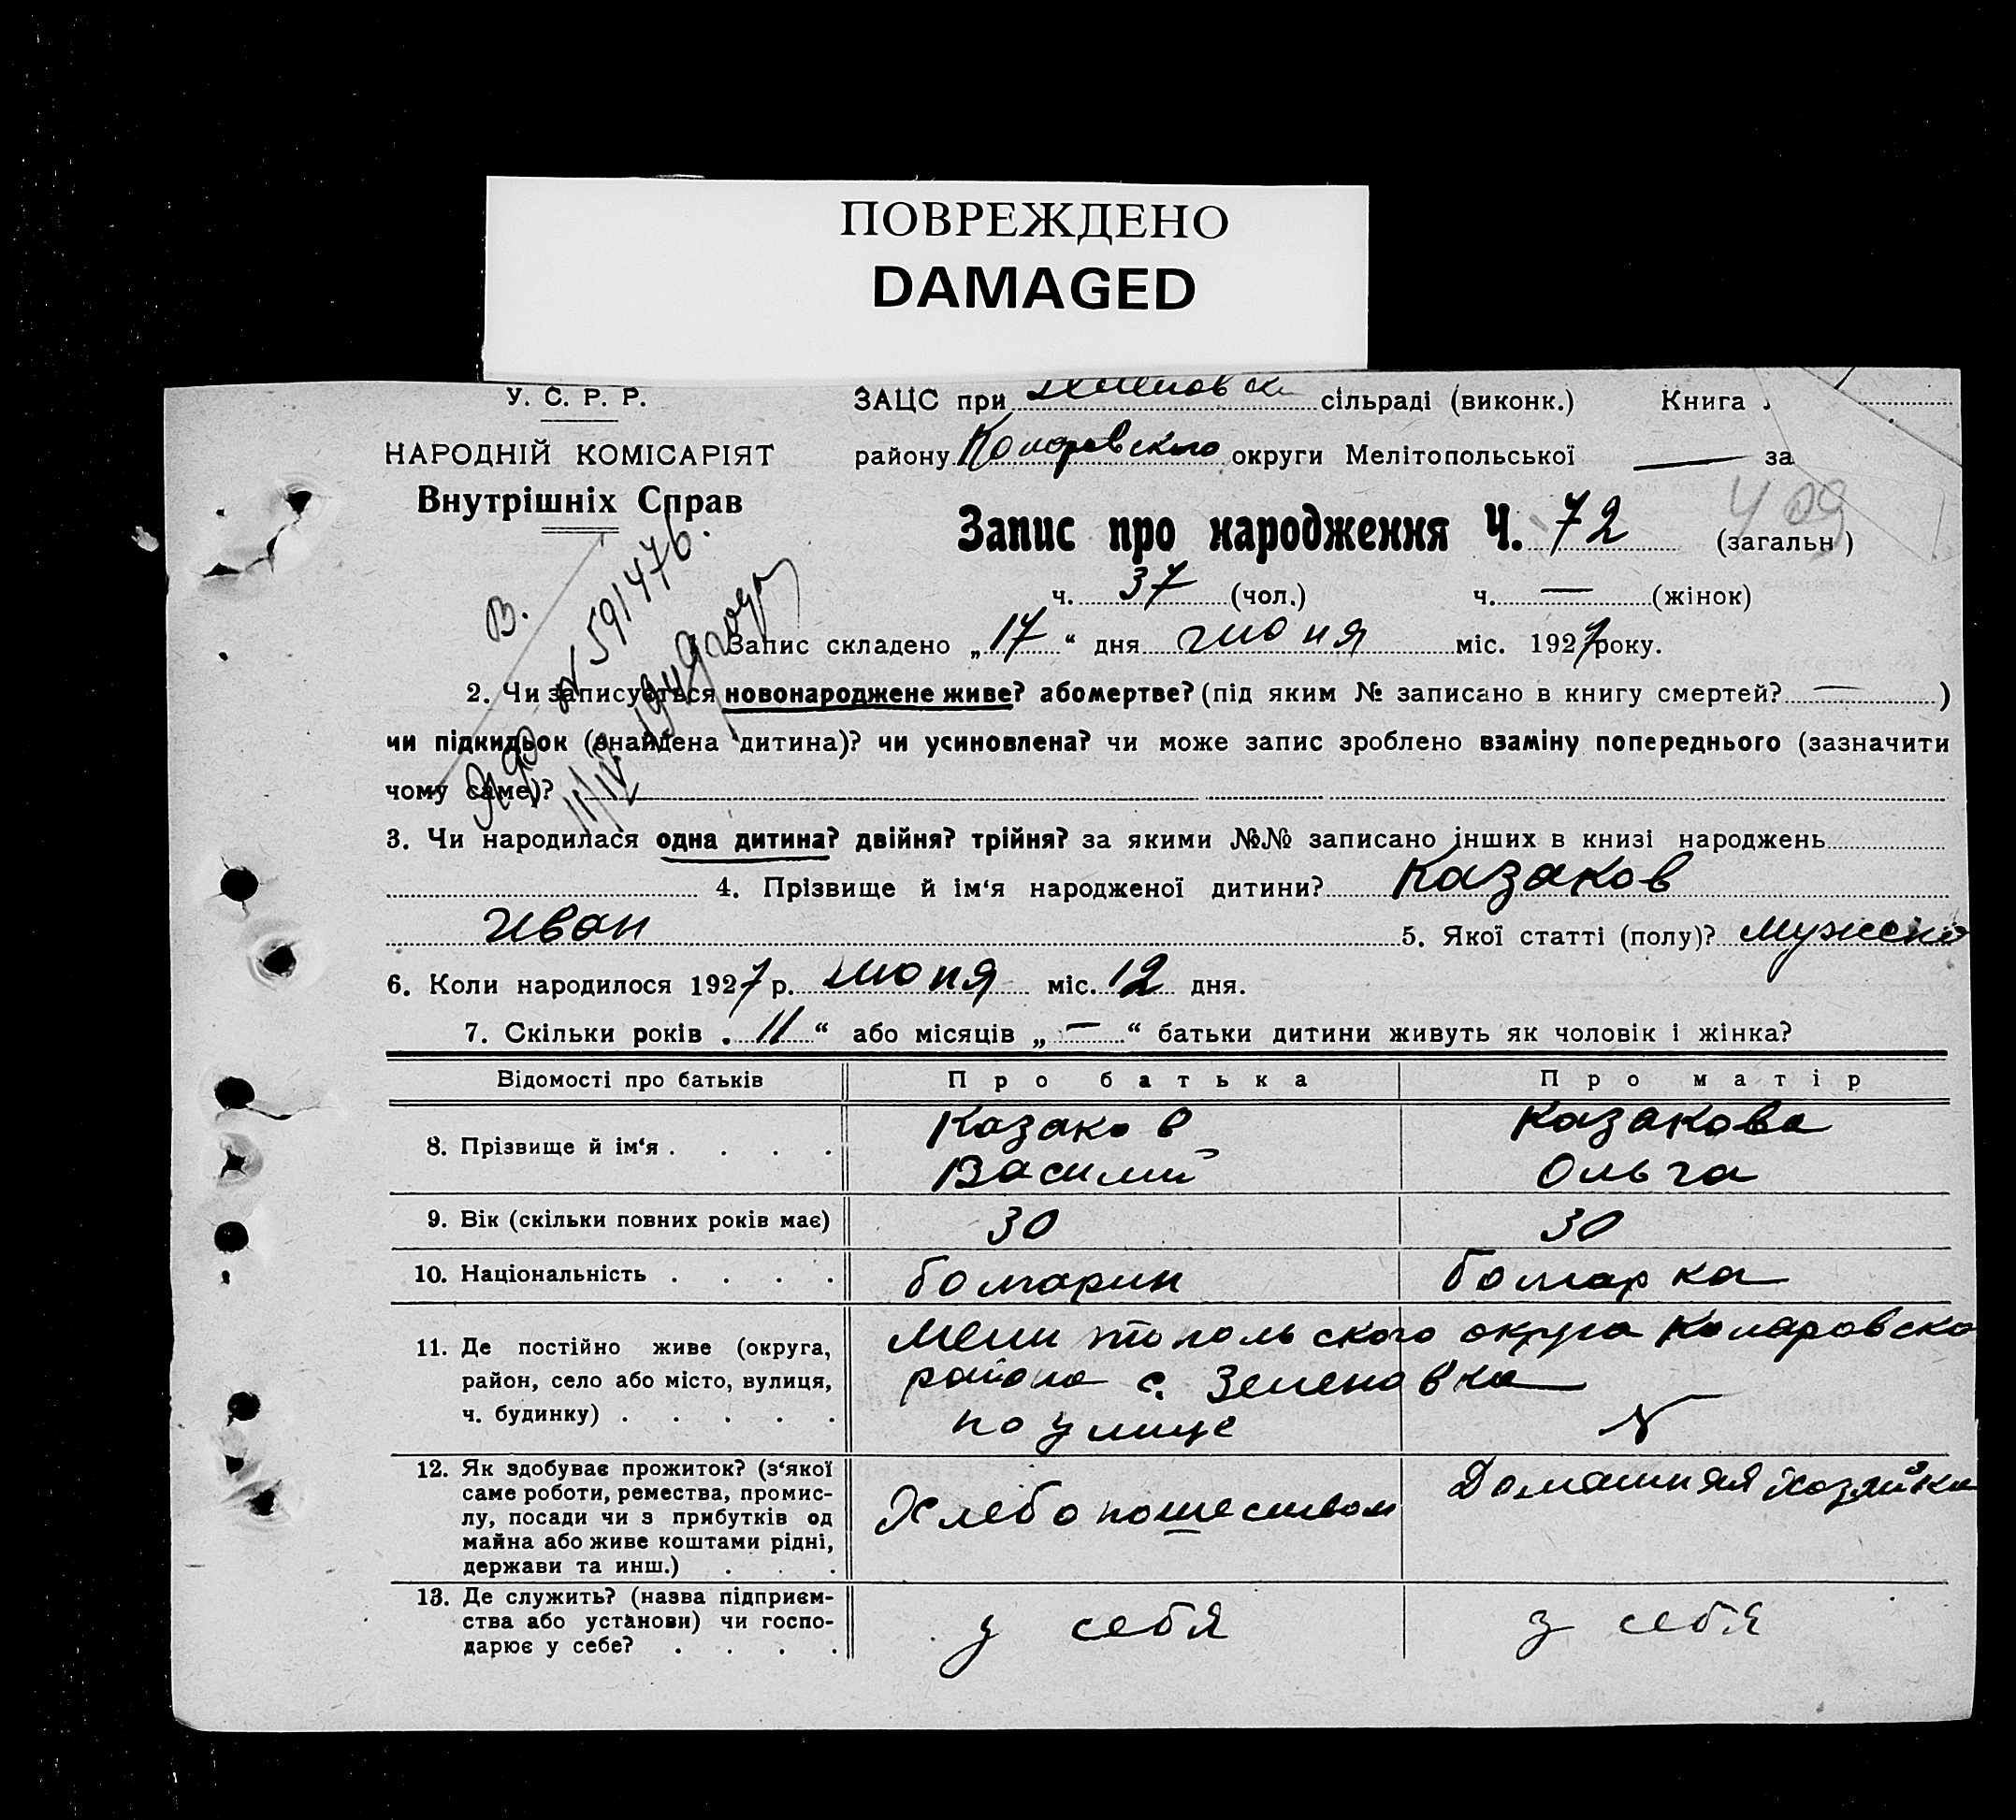 ПОВРЕЖДЕНО
DAMAGED
У. С. Р. Р.
НАРОДНІЙ КОМІСАРІЯТ
Внутрішніх Справ
ЗАЦС при сільраді (виконк.) Книга
району Коларовского округи Мелітопольської — за
409
Запис про народження Ч. 72 (загальн)
ч. 37 (чол.) ч. — (жінок)
Запис складено „17“ дня июня міс. 1927 року.
В.
№ 591476.
2. Чи записується новонароджене живе? або мертве? (під яким № записано в книгу смертей? — )
чи підкидьок (знайдена дитина)? чи усиновлена? чи може запис зроблено взаміну попереднього (зазначити
чому саме)?
3. Чи народилася одна дитина? двійня? трійня? за якими №№ записано інших в книзі народжень
4. Прізвище й ім‘я народженої дитини? Казаков
Иван 5. Якої статті (полу)?
6. Коли народилося 1927 р. июня міс. 12 дня.
7. Скільки років „11“ або місяців „—“ батьки дитини живуть як чоловік і жінка?
Відомості про батьків Про батька Про матір
8. Прізвище й ім‘я . . . . Казаков Василий Казакова Ольга
9. Вік (скільки повних років має) 30 30
10. Національність . . . . болгарин болгарка
11. Де постійно живе (округа, район, село або місто, вулиця, ч. будинку) . . . . .
Мелитопольского округа Коларовско
района с. Зеленовка
по улице
12. Як здобуває прожиток? (з‘якої саме роботи, ремества, промислу, посади чи з прибутків од майна або живе коштами рідні, держави та инш.) . . . Хлебопашеством Домашняя хозяйка
13. Де служить? (назва підприємства або установи) чи господарює у себе? . . . . у себя у себя